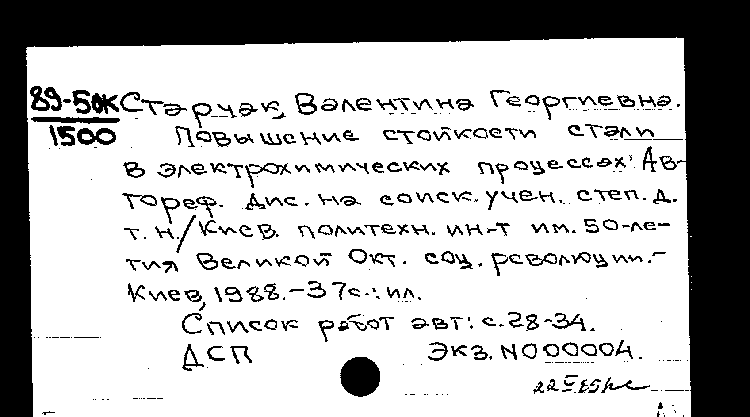 89-50К Старчак, Валентина Георгиевна.
1500 Повышение стойкости стали
в электрохимических процессах: Ав-
тореф. дис. на соиск. учен. степ. д.
т. н./ Киев. политехн. ин-т им. 50-ле-
тия Великой Окт. соц. революции.-
Киев, 1988.-37с.: ил.
Список работ авт: с.28-34.
ДСП Экз. N000004.